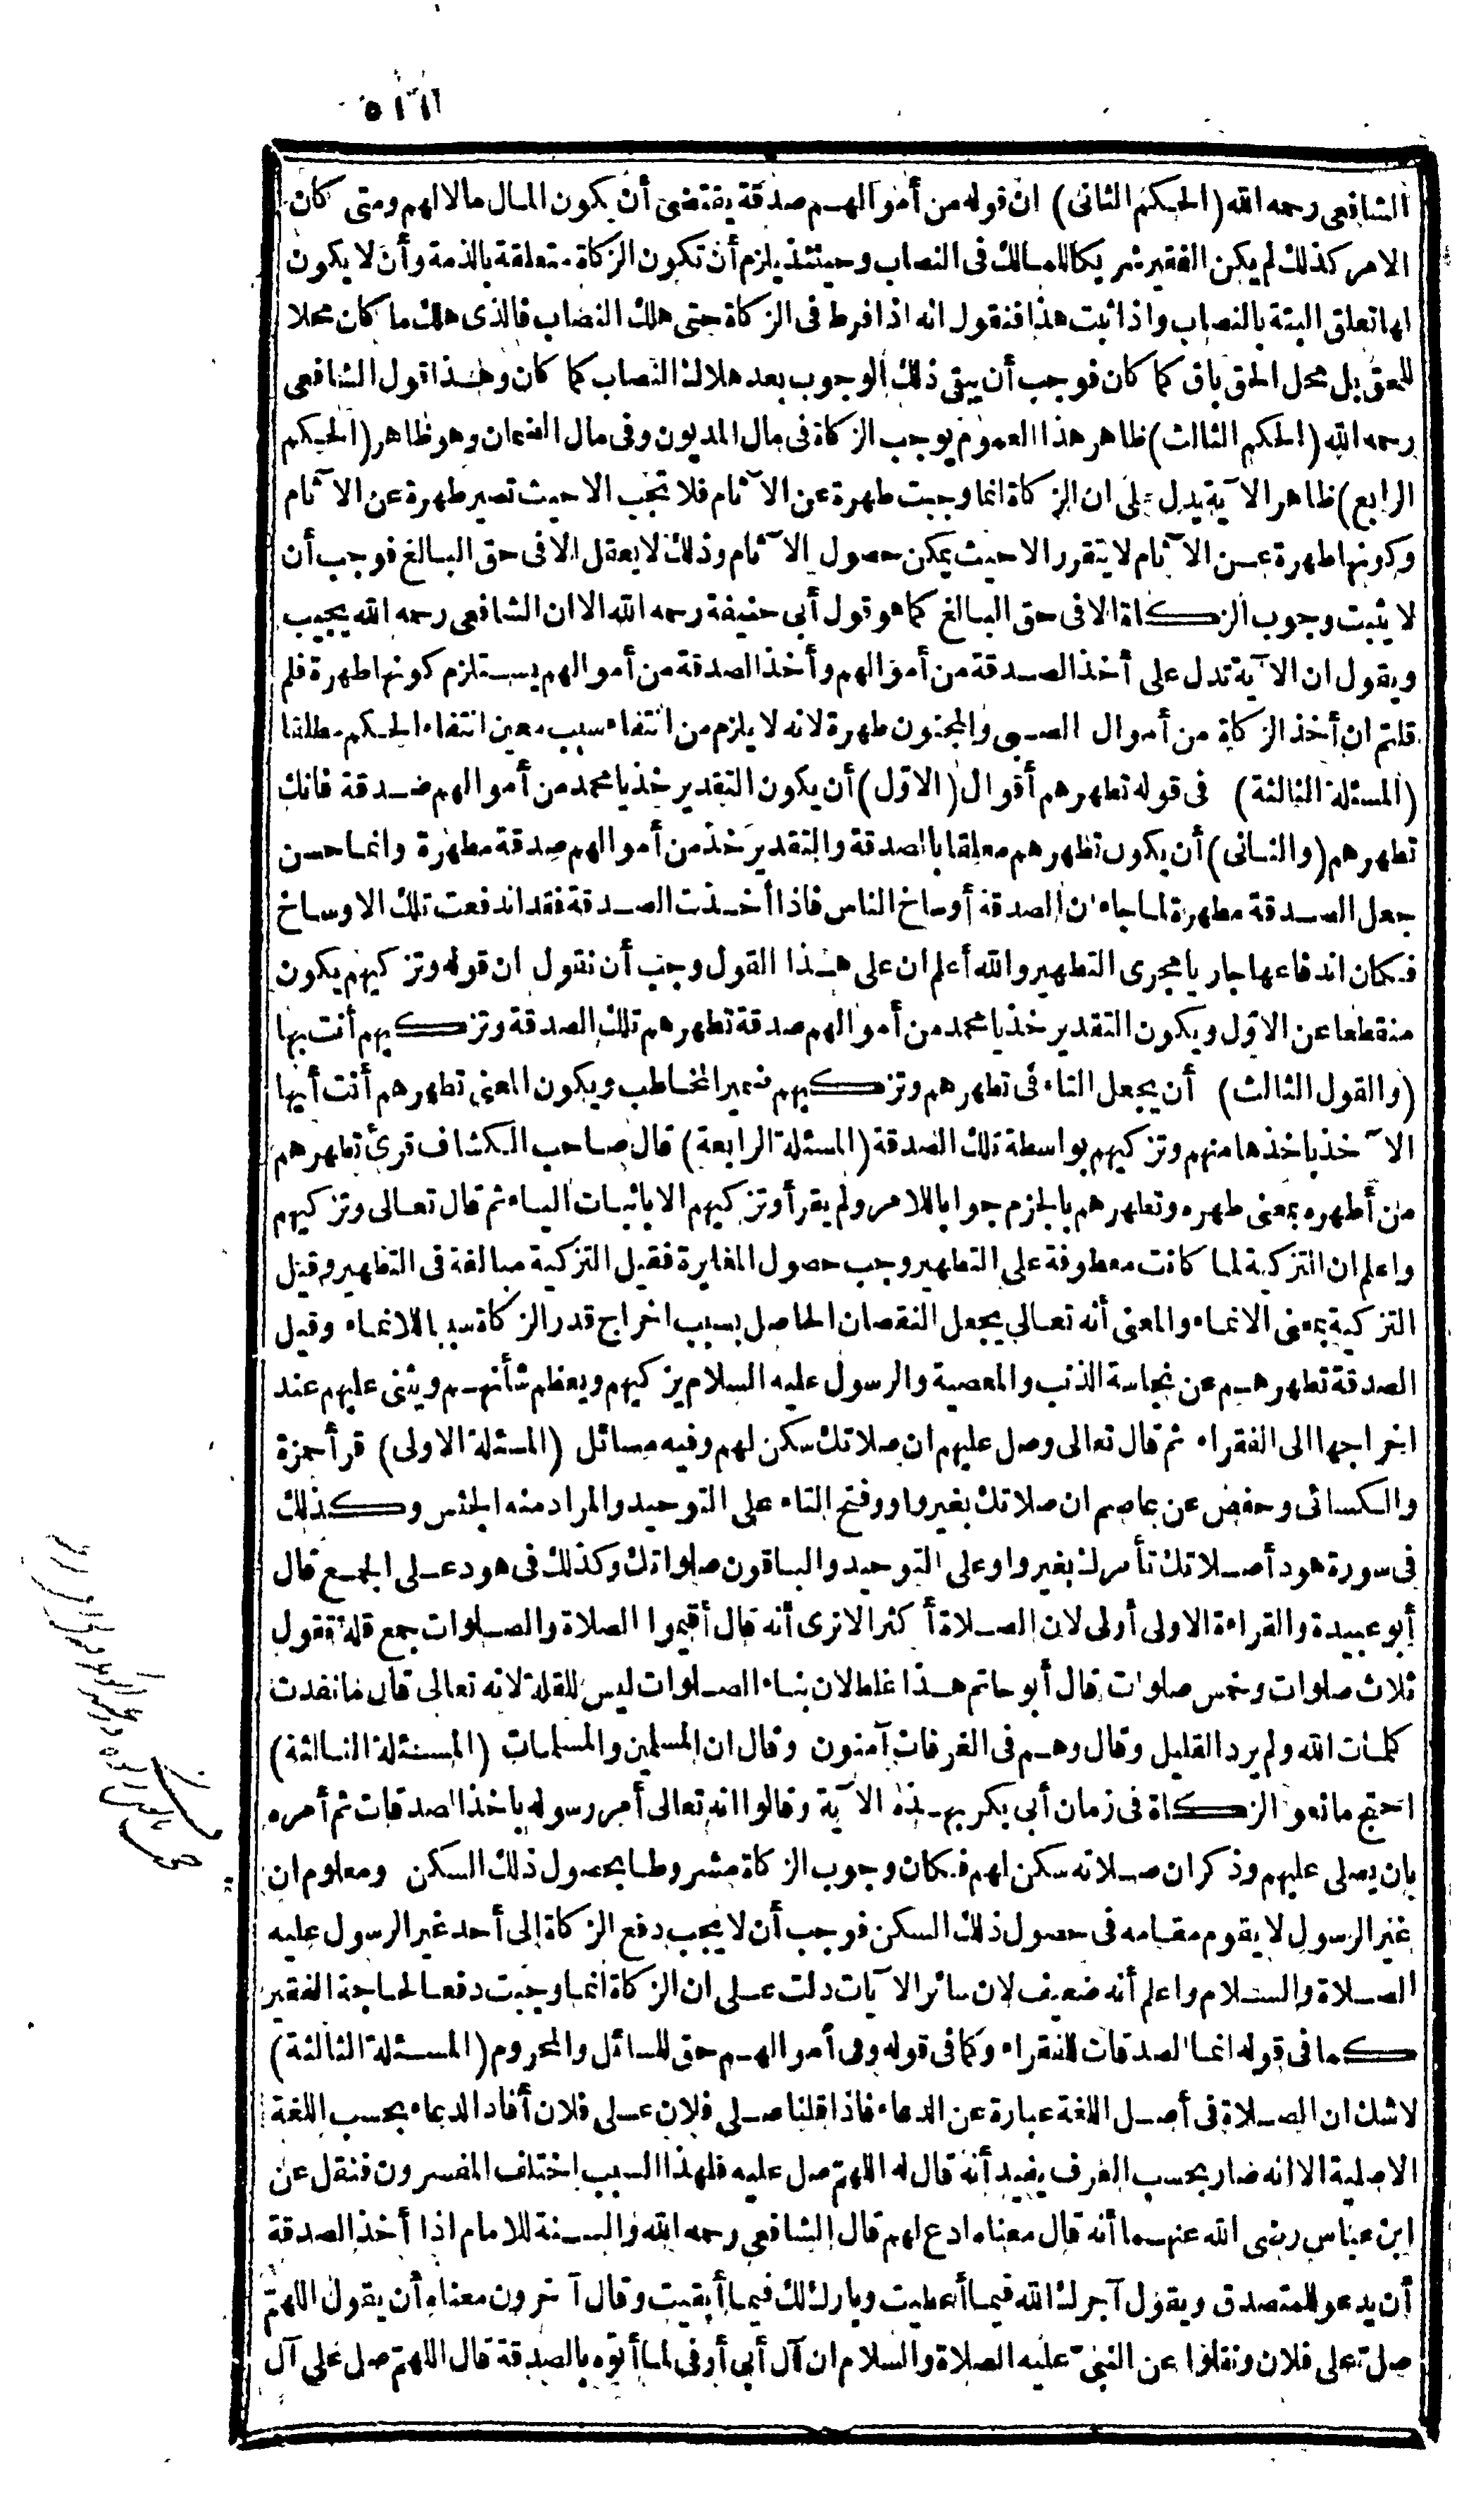 ٥١١
الشافعى رحمه الله (الحكم الثانى) ان قوله من أموالهم صدقة يقتضى أن يكون المال مالا لهم ومتى كان
الامر كذلك لم يكن الفقير شريكا للمالك فى النصاب وحينئذ يلزم أن تكون الزكاة متعلقة بالذمة وأن لا يكون
لها تعلق البتة بالنصاب واذا ثبت هذا فنقول انه اذا فرط فى الزكاة حتى هلك النصاب فالذى هلك ما كان محلا
للحق بل محل الحق باق كما كان فوجب أن يبقى ذلك الوجوب بعد هلاك النصاب كما كان وهذا قول الشافعى
رحمه الله (الحكم الثالث) ظاهر هذا العموم يوجب الزكاة فى مال المديون وفى مال الضمان وهو ظاهر (الحكم
الرابع) ظاهر الآية يدل على ان الزكاة انما وجبت طهرة عن الآثام فلا تجب الا حيث تصير طهرة عن الآثام
وكونها طهرة عن الآثام لا يتقرر الا حيث يمكن حصول الآثام وذلك لا يعقل الا فى حق البالغ فوجب أن
لا يثبت وجوب الزكاة الا فى حق البالغ كما هو قول أبى حنيفة رحمه الله الا ان الشافعى رحمه الله يجيب
ويقول ان الآية تدل على أخذ الصدقة من أموالهم وأخذ الصدقة من أموالهم يستلزم كونها طهرة فلم
قلتم ان أخذ الزكاة من أموال الصبى والمجنون طهرة لانه لا يلزم من انتفاء سبب معين انتفاء الحكم مطلقا
(المسئلة الثالثة) فى قوله تطهرهم أقوال (الاوّل) أن يكون التقدير خذ يا محمد من أموالهم صدقة فانك
تطهرهم (والثانى) أن يكون تطهرهم معلقا بالصدقة والتقدير خذ من أموالهم صدقة مطهرة وانما حسن
جعل الصدقة مطهرة لما جاء ان الصدقة أوساخ الناس فاذا أخذت الصدقة فقد اندفعت تلك الاوساخ
فكان اندفاعها جاريا مجرى التطهير والله أعلم ان على هذا القول وجب أن نقول ان قوله وتزكيهم يكون
منقطعا عن الاوّل ويكون التقدير خذ يا محمد من أموالهم صدقة تطهرهم تلك الصدقة وتزكيهم أنت بها
(والقول الثالث) أن يجعل التاء فى تطهرهم وتزكيهم ضمير المخاطب ويكون المعنى تطهرهم أنت أيها
الآخذ باخذها منهم وتزكيهم بواسطة تلك الصدقة (المسئلة الرابعة) قال صاحب الكشاف قرئ تطهرهم
من أطهره بمعنى طهره وتطهرهم بالجزم جوابا للامر ولم يقرأ وتزكيهم الا باثبات الياء ثم قال تعالى وتزكيهم
واعلم ان التزكية لما كانت معطوفة على التطهير وجب حصول المغايرة فقيل التزكية مبالغة فى التطهير وقيل
التزكية بمعنى الانماء والمعنى أنه تعالى يجعل النقصان الحاصل بسبب اخراج قدر الزكاة سببا للانماء وقيل
الصدقة تطهرهم عن نجاسة الذنب والمعصية والرسول عليه السلام يزكيهم ويعظم شأنهم ويثنى عليهم عند
اخراجها الى الفقراء ثم قال تعالى وصل عليهم ان صلاتك سكن لهم وفيه مسائل (المسئلة الاولى) قرأ حمزة
والكسائى وحفص عن عاصم ان صلاتك بغير واو وفتح التاء على التوحيد والمراد منه الجنس وكذلك
فى سورة هود أصلاتك تأمرك بغير واو على التوحيد والباقون صلواتك وكذلك فى هود على الجمع قال
أبو عبيدة والقراءة الاولى أولى لان الصلاة أكثر الا ترى أنه قال أقيموا الصلاة والصلوات جمع قلة تقول
ثلاث صلوات وخمس صلوات قال أبو حاتم هذا غلط لان بناء الصلوات ليس للقلة لانه تعالى قال ما نفدت
كلمات الله ولم يرد القليل وقال وهم فى الغرفات آمنون وقال ان المسلمين والمسلمات (المسئلة الثالثة)
احتج مانعو الزكاة فى زمان أبى بكر بهذه الآية وقالوا انه تعالى أمر رسوله باخذ الصدقات ثم أمره
بان يصلى عليهم وذكر ان صلاته سكن لهم فكان وجوب الزكاة مشروطا بحصول ذلك السكن ومعلوم ان
غير الرسول لا يقوم مقامه فى حصول ذلك السكن فوجب أن لا يجب دفع الزكاة إلى أحد غير الرسول عليه
الصلاة والسلام واعلم أنه ضعيف لان سائر الآيات دلت على ان الزكاة انما وجبت دفعا لحاجة الفقير
كما فى قوله انما الصدقات للفقراء وكما فى قوله وفى أموالهم حق للسائل والمحروم (المسئلة الثالثة)
لا شك ان الصلاة فى أصل اللغة عبارة عن الدعاء فاذا قلنا صلى فلان على فلان أفاد الدعاء بحسب اللغة
الاصلية الا انه صار بحسب العرف يفيد أنه قال له اللهمّ صل عليه فلهذا السبب اختلف المفسرون فنقل عن
ابن عباس رضى الله عنهما أنه قال معناه ادع لهم قال الشافعى رحمه الله والسنة للامام اذا أخذ الصدقة
أن يدعو للمتصدق ويقول آجرك الله فيما أعطيت وبارك لك فيما أبقيت وقال آخرون معناه أن يقول اللهمّ
صلّ على فلان ونقلوا عن النبىّ عليه الصلاة والسلام ان آل أبى أوفى لما أتوه بالصدقة قال اللهمّ صل على آل